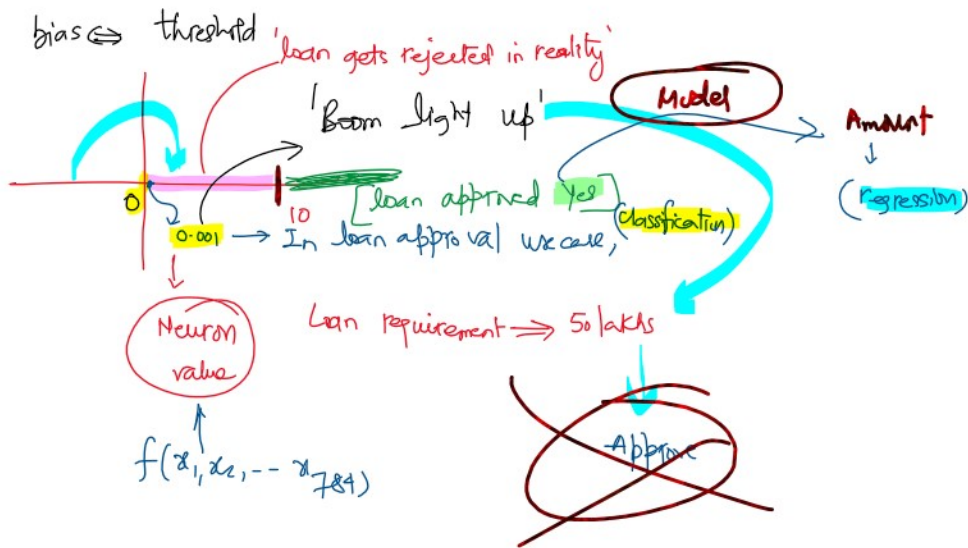 bias ⇔ threshold
'loan gets rejected in reality'
'Boom light up'
Model
Amount
(regression)
0
10
[loan approved Yes]
0.001 → In loan approval usecase, (classification)
Neuron
value
Loan requirement ⇒ 50 lakhs
Approve
f(x₁, x₂, -- x₇₈₄)